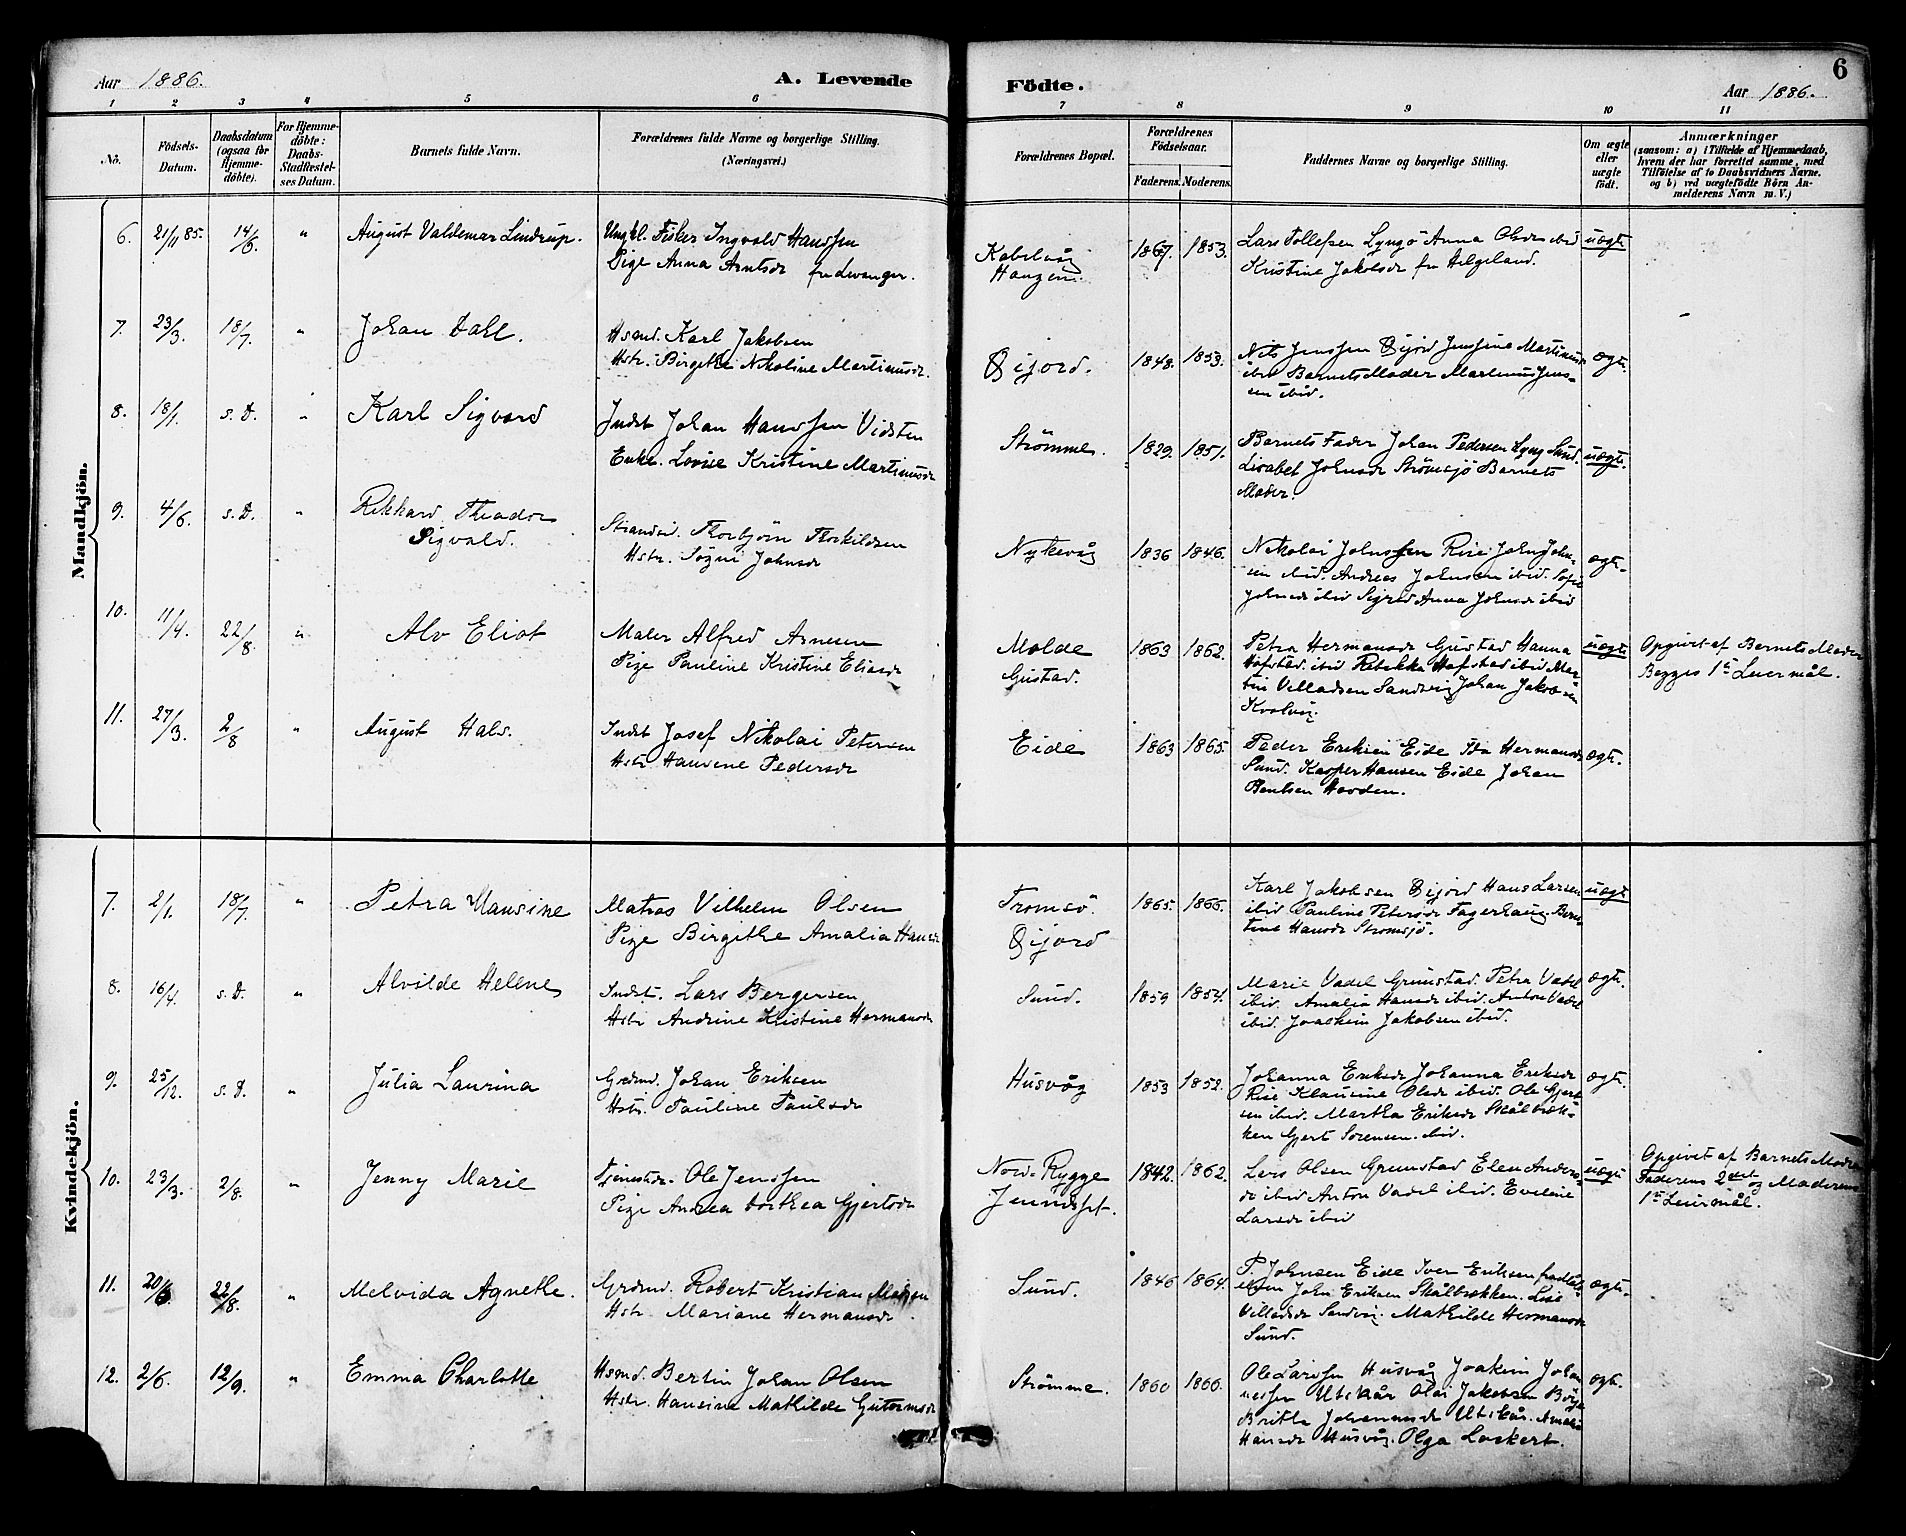 Aar 1886.
A. Levende
Födte.
6
Aar 1886.
1 2 3 4 5 6 7 8 9 10 11
No.
Födsels-
Datum.
Daabsdatum
(ogsaa for
Hjemme-
döbte).
For Hjemme-
döbte:
Daabs-
Stadfæstel-
ses Datum.
Barnets fulde Navn.
Forældrenes fulde Navne og borgerlige Stilling.
(Næringsvei.)
Forældrenes Bopæl.
Forældrenes
Födselsaar.
Faderens. Moderens.
Faddernes Navne og borgerlige Stilling.
Om ægte
eller
uægte
födt.
Anmærkninger
(saasom: a) i Tilfælde af Hjemmedaab,
hvem der har forrettet samme, med
Tilföielse af to Daabsvidners Navne.
og b) ved uægtefödte Börn An-
melderens Navn m. V.)
Mandkjön.
6. 21/11 85. 14/6. " August Valdemar Lindrup. Ungkl. Fisker Ingvald Hanssen
Pige Anna Arntsdr fra Levanger.
Kabelvåg
Haugen.
1867. 1853. Lars Tollefsen Lyngö Anna Olsdr ibid
Kristine Jakobsdr fra Helgeland.
uægte
7. 23/3. 18/7. " Johan Dahl. Hsmd. Karl Jakobsen
Hstr. Birgithe Nikoline Martinusdr.
Qeijord. 1848. 1853. Nils Jenssen Qeijord Jenssine Martinusdr
ibid Barnets Moder Martinus Jens-
sen ibid.
ægte.
8. 18/1. s.D. " Karl Sigvard Indst Johan Hanssen Vidsten
Enke. Lovise Kristine Martinusdr
Strömme. 1829. 1851. Barnets Fader Johan Pedersen Lyng Sund.
Lisabet Johnsdr Strömsjö Barnets
Moder.
uægte.
9. 4/6. s.D. " Rikhard Theodor
Sigvald.
Strandsid. Thorbjörn Thorkildsen
Hstr. Sögni Johnsdr
Nykvåg 1836 1846. Nikolai Johnssen Rise. John John-
sen ibid. Andreas Johnsen ibid. Sofie
Johnsdr ibid Sigrid Anna Johnsdr ibid
ægte.
10. 11/4. 22/8. " Alv Eliot Maler Alfred Arnesen
Pige Pauline Kristine Eliasdr
Molde
Gustad.
1863 1862. Petra Hermansdr Gustad Hanna
Hofstad. ibid Rebekka Hofstad ibid Mar-
tin Villadsen Sandvig Johan Jakobsen
Kvalvig.
uægte Opgivet af Barnets Moder
Begges 1ste Leiermål.
11. 27/3. 2/8 " August Hals. Indst Josef Nikolai Petersen
Hstr Hansine Pedersdr
Eide 1863 1865. Peder Eriksen Eide Ida Hermansdr
Sund. Kasper Hansen Eide Johan
Bentsen Hovden.
ægte.
Kvindekjön.
7. 2/1. 18/7. " Petra Hansine Matros Vilhelm Olsen
Pige Birgithe Amalia Hansdr
Tromsö.
Qeijord
1865. 1866. Karl Jakobsen Qeijord Hans Larsen
ibid Pauline Petersdr Fagerhaug. Bern-
tine Hansdr Strömsjö.
uægte
8. 16/4. s.D. " Alvilde Helene Indst. Lars Bergersen
Hstr Andrine Kristine Hermansdr
Sund. 1859 1854. Marie Vadel Grunstad. Petra Vadel
ibid. Amalia Hansdr ibid. Anton Vadel
ibid. Joachim Jakobsen ibid.
ægte.
9. 25/12. s.D. " Julia Laurina Grdmd. Johan Eriksen
Hstr. Pauline Paulsdr
Husvåg 1853 1852. Johanna Eriksdr Johanna Eriksdr
Rise Klausine Olsdr ibid. Ole Gjert-
sen ibid. Martha Eriksdr Skålbræk-
ken Gjert Sörensen. ibid.
ægte.
10. 23/3. 2/8. " Jenny Marie Tjenestdr. Ole Jenssen
Pige Andrea Dorthea Gjertsdr
Nord-Rygge
Jennestet.
1842. 1862. Lars Olsen Grunstad Elen Anders-
dr ibid Anton Vadel ibid. Eveline
Larsdr ibid
uægte Opgivet af Barnets Moder
Faderens 2det og Moderens
1ste Leiermål.
11. 20/6. 22/8. " Melvida Agnethe. Grdmd. Robert Kristian Madsen
Hstr. Mariane Hermansdr.
Sund. 1846 1864. P. Johnsen Eide Iver Eriksen
John Eriksen Skålbrækken. Lise
Villadsdr Sandvig. Mathilde Hermansdr
Sund.
ægte.
12. 2/6. 12/9. " Emma Charlotte Hsmd. Bertin Johan Olsen
Hstr. Hansine Mathilde Guttormsdr
Strömme. 1860 1866. Ole Larssen Husvåg Joakim Johan-
nessen Utskår Olai Jakobsen
Britha Johannesdr Utskår. Amalia
Hansdr Husvåg. Olga Lockert.
ægte.